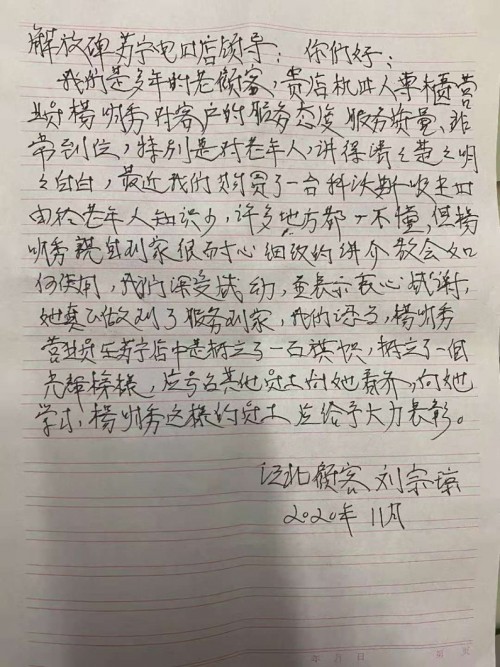 解放碑苏宁电口店领导：你们好：
我们是多年的老顾客，贵店机口人專櫃营
业员楊明秀对客户的服务态度服务质量、非
常到位，特别是对老年人，讲得清々楚々明
々白白，最近我们购買了一台科沃斯
由於老年人知识少，许多地方都不懂，但楊
明秀親自到家很而寸心细致的講介教会如
何使用，我们深受感动，並表示衷心感谢，
她真正做到了服务到家，我们认为，楊明秀
营业员在苏宁店中是树立了一面旗帜，树立了一個
光輝榜樣，应号召其他员工向她看齐，向她
学习，楊明秀这樣的员工应给予大力表彰。
江北顧客刘宗琼
2020年11月
年月日 第 页